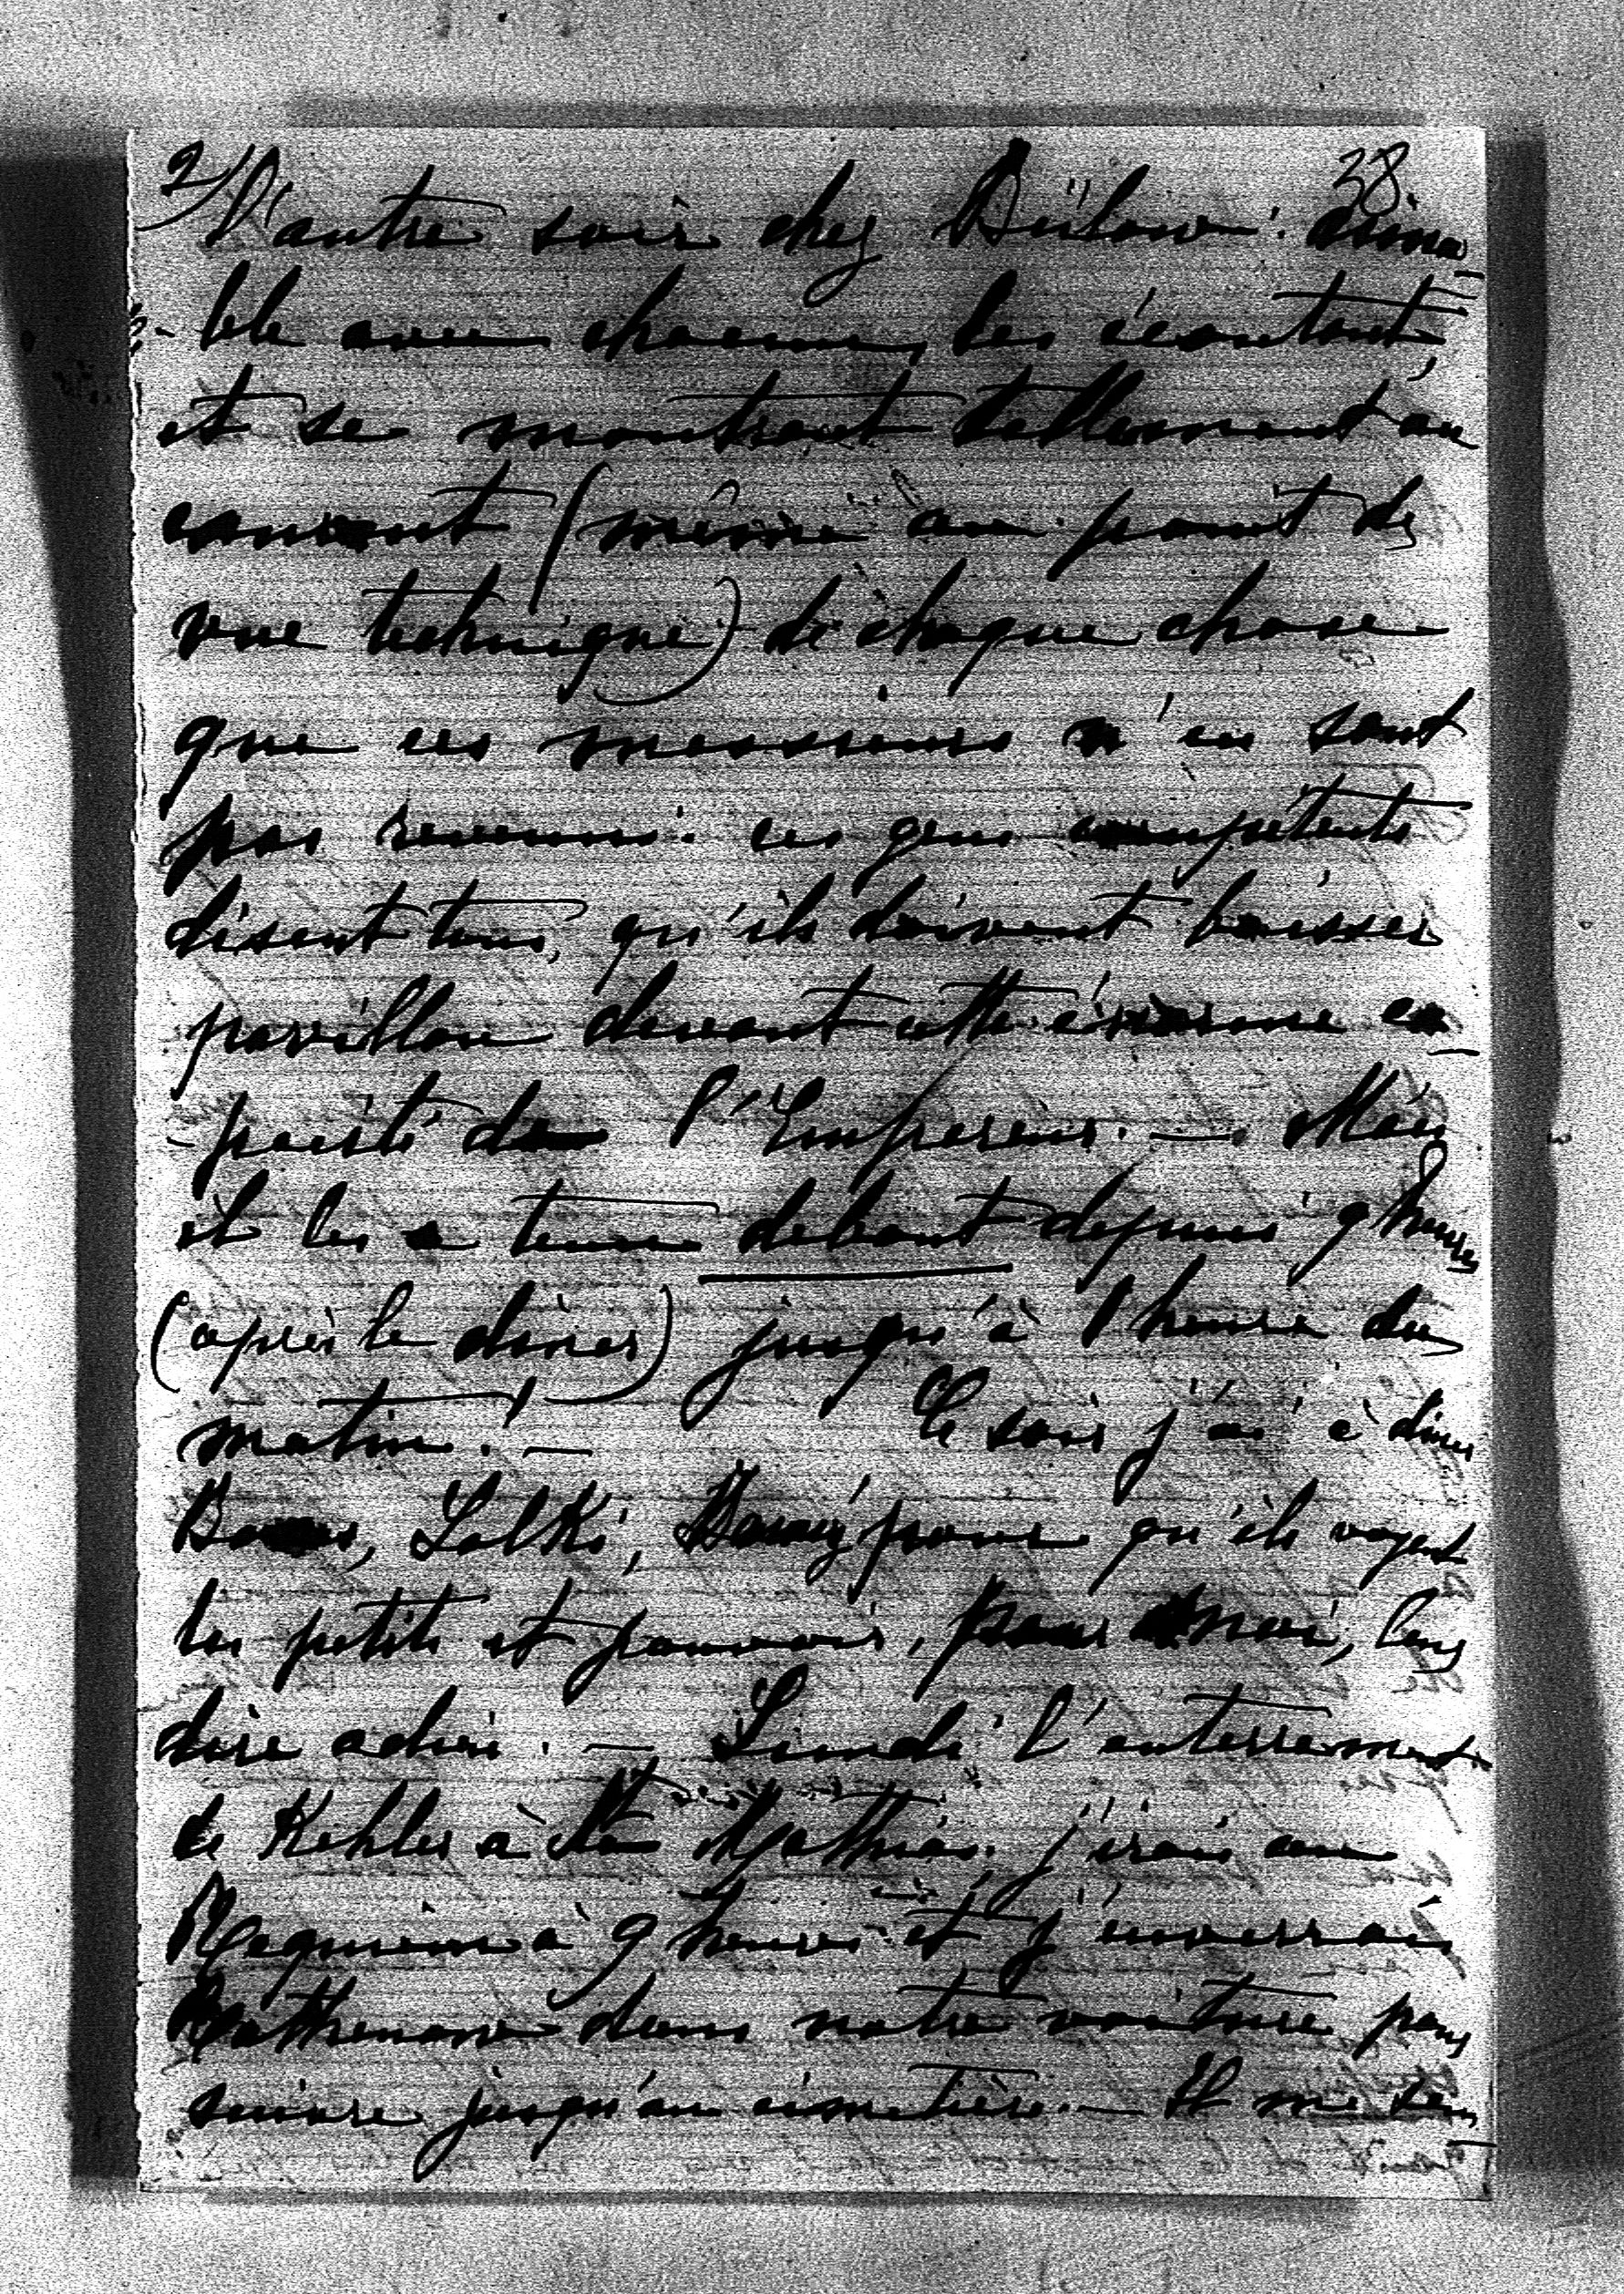 2/ 38
L'autre soir chez Bülow: aima-
-ble avec chacun, les écoutant,
et se montrant tellement au
courant (même au point de
vue technique) de chaque chose
que ces messieurs n'en sont
pas revenus: ces gens compétents
disent tous, qu'ils doivent baisser
pavillon devant cette énorme ca-
-pacité de l'Empereur. — Mais
il les a tenus debout depuis 9 heures
(après le dîner) jusqu'à 1 heure du
matin! — Ce soir j'ai à dîner
Lolki, pour qu'ils voyent
les petits et pouvoir, pour moi, leur
dire adieu. — Lundi l'enterrement
de Kehler à St Mathias; j'irai au
Requiem à 9 heures et j'enverrai
dans notre voiture pour
suivre jusqu'au cimetière. — Il me sem-